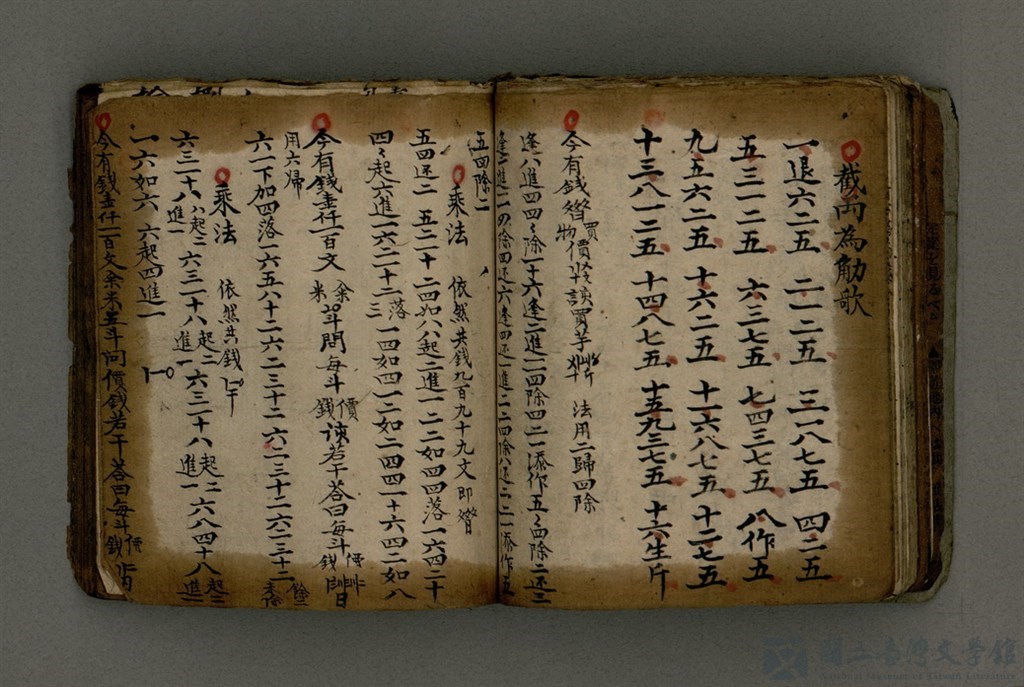 截両為觔歌
一退六二五 二一二五 三一八七五 四二五
五三一二五 六三七五 七四三七五 八作五
九五六二五 十六二五 十一六八七五 十二七五
十三八一二五 十四八七五 十五九三七五 十六生斤
今有錢 買物價 該買芋 法用二歸四除
逢八進四四〻除一十六逢二進一二四除四二一添作五〻四除二还三
逢二進一一四除四还六逢四还一進二二四除八还二二一添作五
五四除二
乘法 依然共錢九百九十九文即
五四还二 五二十二四如八八起二進一二二如四四落一六四二十
四〻起六進一六二十二落三一四如四一二如二四四一十六四二如八
今有錢壹仟一百文余米 斗問每斗價錢該若干荅曰每斗價錢
用六歸
六一下加四落一六五八十二六二三十二六二三十二六二三十二餘二
乘法 依然共錢
六三十八八起二進一六三十八起二進一六三十八起二進一六八四十八起二進一
一六如六六起四進一
今有錢壹仟一百文余米五斗问價錢若干荅曰每斗價錢
國立臺灣文學館
National Museum of Taiwan Literature